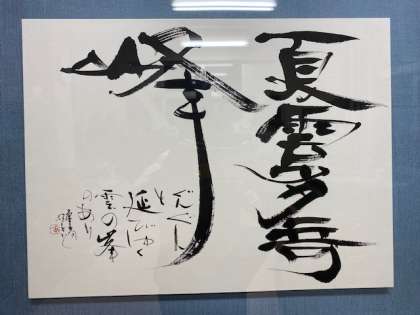 夏雲多奇
峰
ぐんぐん
と
延びゆく
雲の峯
のあり